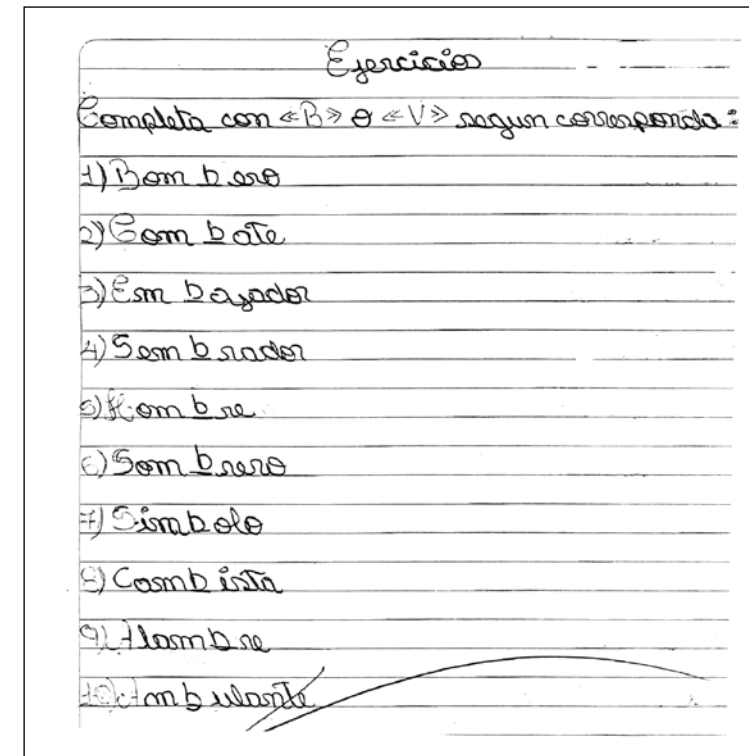 Ejercicios
Completa con «B» o «V» segun corresponda:
1) Bombero
2) Combate
3) Embajador
4) Sembrador
5) Hombre
6) Sombrero
7) Símbolo
8) Cambista
9) Alambre
10) Ambulante